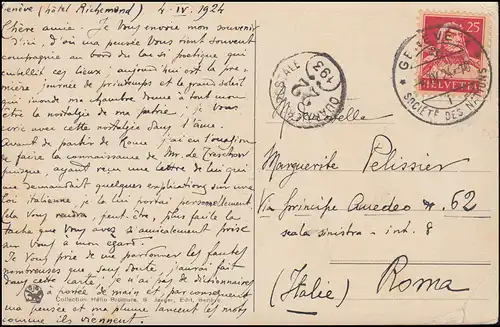 Genève (hôtel Richemond) 4-IV-1924
Chère amie. Je Vous envoie mon souvenir
d'ici, d'où ma pensée Vous vient souvent
compagnie au bord du lac si poétique qui
embellit ces lieux; aujourd'hui est la pre-
mière journée de printemps et le grand soleil
qui inonde ma chambre donne à tout mon
être la nostalgie de ma patrie, et je Vous
écris avec cette nostalgie dans l'âme.
Avant de partir de Rome j'ai eu l'occasion
de faire la connaissance de Mr.
puisque, ayant reçu une lettre de lui qui
me demandait quelques explications sur une
loi italienne, je la lui portai personnellement
Cela Vous rendra, peut être, plus facile la
tache que Vous avez si amicalement prise
sur Vous à mon égard.
Je Vous prie de me pardonner les fautes
nombreuses que sans doute j'aurai fait
dans cette carte, je n'ai pas de dictionnaires
à portée de main et pourtant je laisse ma
pensée et ma plume lancent les mots
comme ils viennent.
Collection Hélio Brunners. S. Jaeger, Edit. Genève.
25
HELVETIA
GENÈVE
SOCIÉTÉ DES NATIONS
Mademoiselle
Marguerite Pelissier
Via Principe Amedeo n. 62
scala sinistra - int. 8
Roma
(Italie)